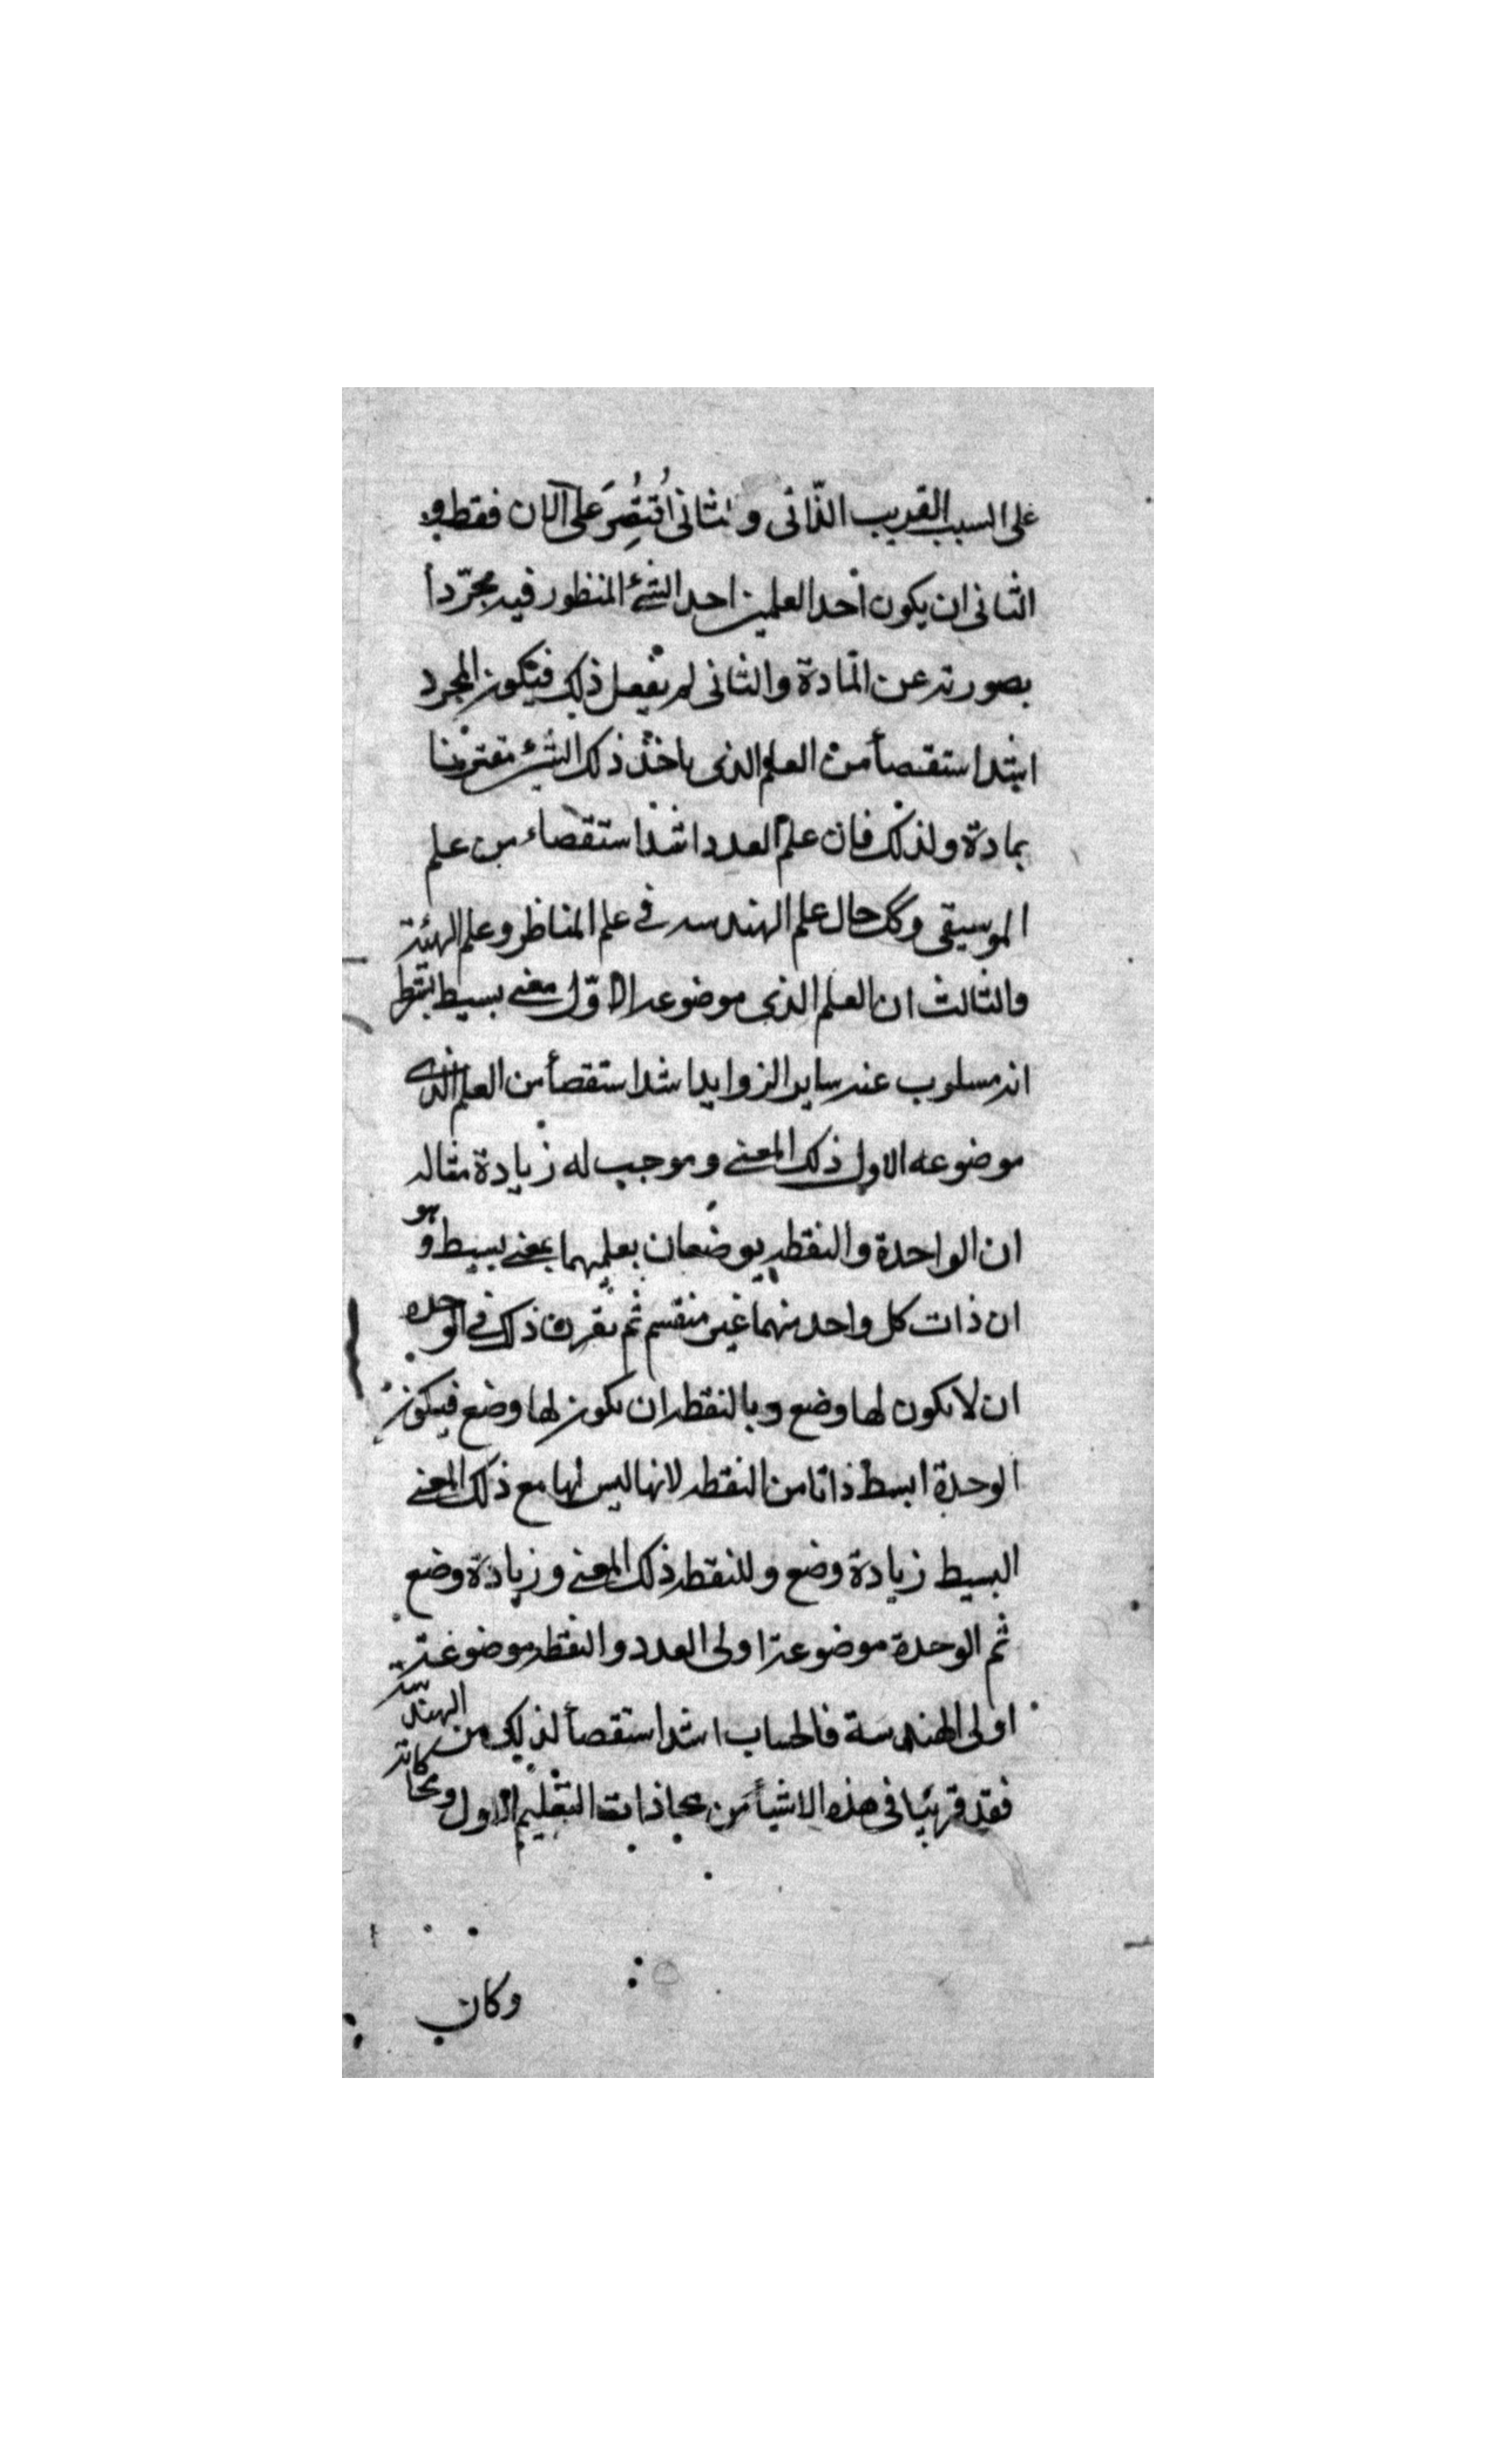 على السبب القريب الذّاتى والثانى اُقتُصِرَ على الان فقط و
الثانى ان يكون احد العلمين احد الشئ المنظور فيه مجرّداً
بصورته عن المّادة والثانى لم يفعل ذلك فيكون المجرد
اشد استقصأ من العلم الذى ياخذ ذلك الشئ مقترنا
بمادة ولذلك فان علم العدد اشد استقصاء من علم
الموسيقى وكك حال علم الهندسه فى علم المناظر وعلم الهيئة
والثالث ان العلم الذى موضوعه الاوّل معنى بسيط بشرط
انه مسلوب عنه ساير الزوايد اشد استقصأ من العلم الذى
موضوعه الاول ذلك المعنى وموجب له زيادة مثاله
ان الواحدة والنقطه يوضعان بعلمهما بمعنى بسيط وهو
ان ذات كل واحد منهما غير منقسم ثم يقرن ذلك فى الوحده
ان لا يكون لها وضع وبالنقطه ان يكون لها وضع فيكون
الوحدة ابسط ذاتا من النقطه لانها ليس لها مع ذلك المعنى
البسيط زيادة وضع وللنقطه ذلك المعنى وزيادة وضع
ثم الوحدة موضوعة اولى العدد والنقطه موضوعة
اولى الهندسة فالحساب اشد استقصأ لذلك من الهندسة
فقد قربنا فى هذه الاشيأ من محاذاة التعليم الاول ومحاكاته
وكان